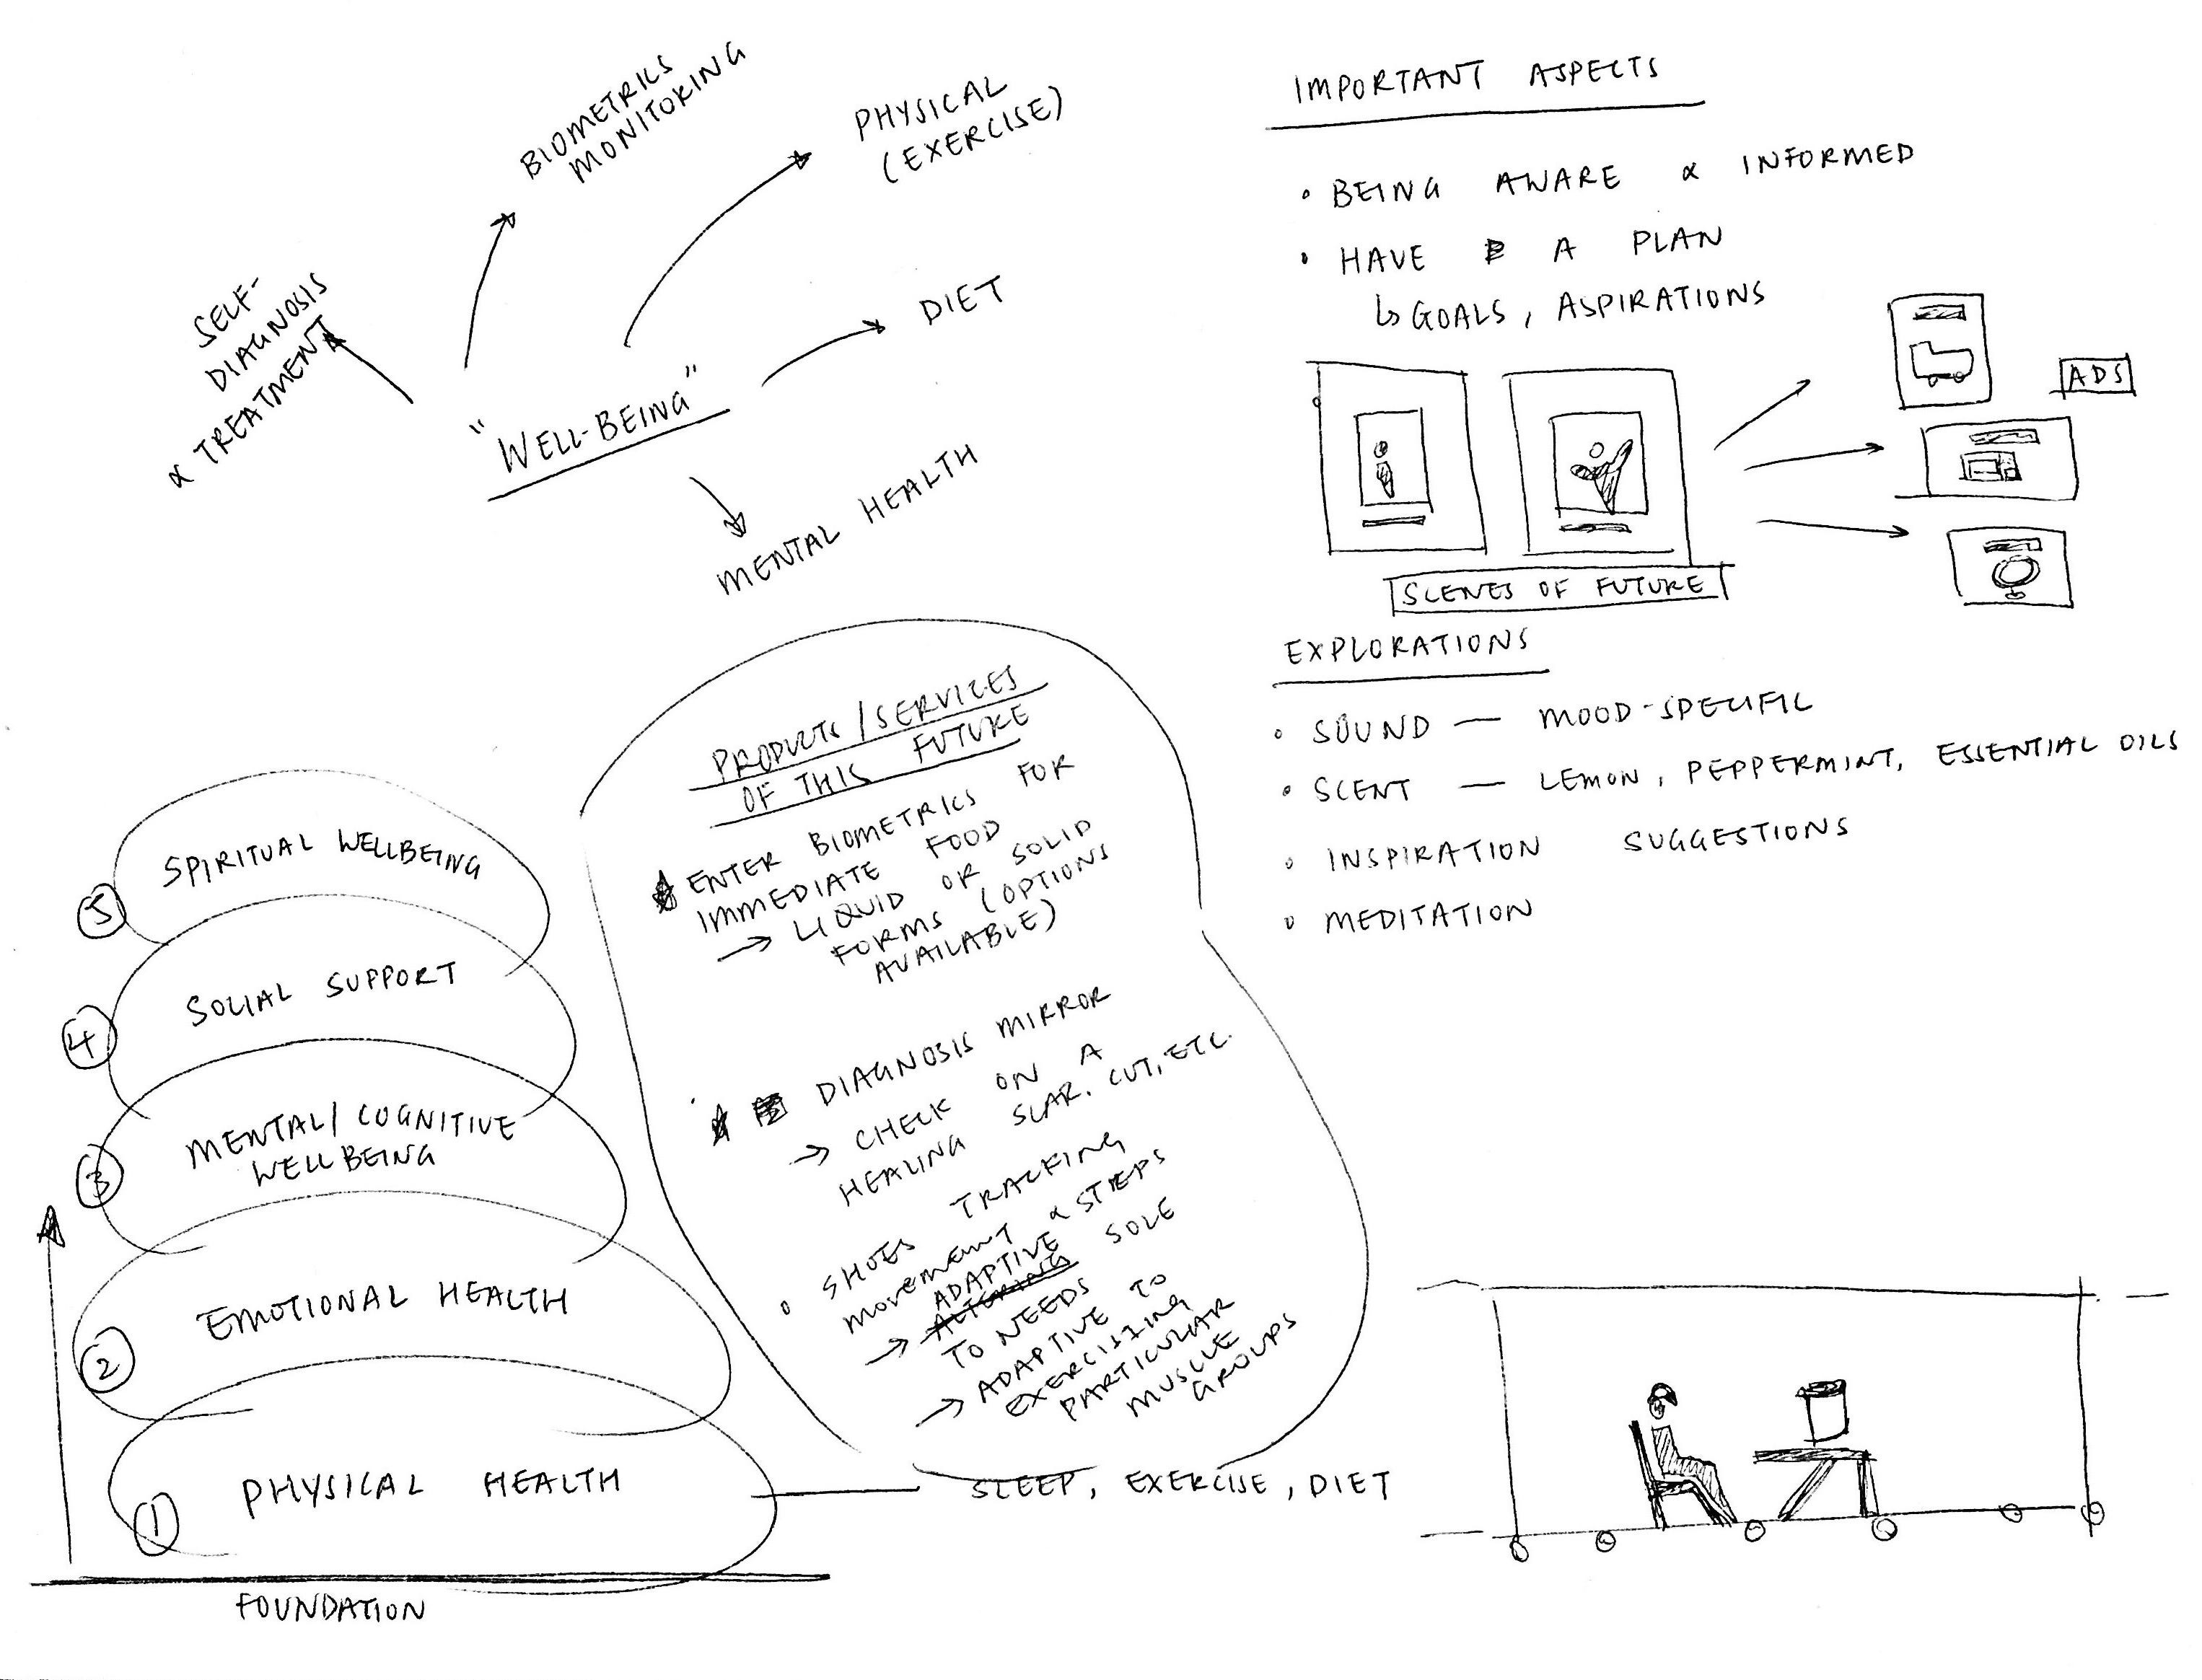 BIOMETRICS
MONITORING
PHYSICAL
(EXERCISE)
SELF-
DIAGNOSIS
& TREATMENT
DIET
"WELL-BEING"
MENTAL HEALTH
IMPORTANT ASPECTS
• BEING AWARE & INFORMED
• HAVE A PLAN
↳ GOALS, ASPIRATIONS
ADS
SCENES OF FUTURE
EXPLORATIONS
• SOUND — MOOD-SPECIFIC
• SCENT — LEMON, PEPPERMINT, ESSENTIAL OILS
• INSPIRATION SUGGESTIONS
• MEDITATION
PRODUCTS/SERVICES
OF THIS FUTURE
ENTER BIOMETRICS FOR
IMMEDIATE FOOD
→ LIQUID OR SOLID
FORMS (OPTIONS
AVAILABLE)
DIAGNOSIS MIRROR
→ CHECK ON A
HEALING SCAR, CUT, ETC.
• SHOES TRACKING
MOVEMENT & STEPS
ADAPTIVE
→ ALTERING SOLE
TO NEEDS
→ ADAPTIVE TO
EXERCISING
PARTICULAR
MUSCLE
GROUPS
5 SPIRITUAL WELLBEING
4 SOCIAL SUPPORT
3 MENTAL/COGNITIVE
WELLBEING
2 EMOTIONAL HEALTH
1 PHYSICAL HEALTH — SLEEP, EXERCISE, DIET
FOUNDATION